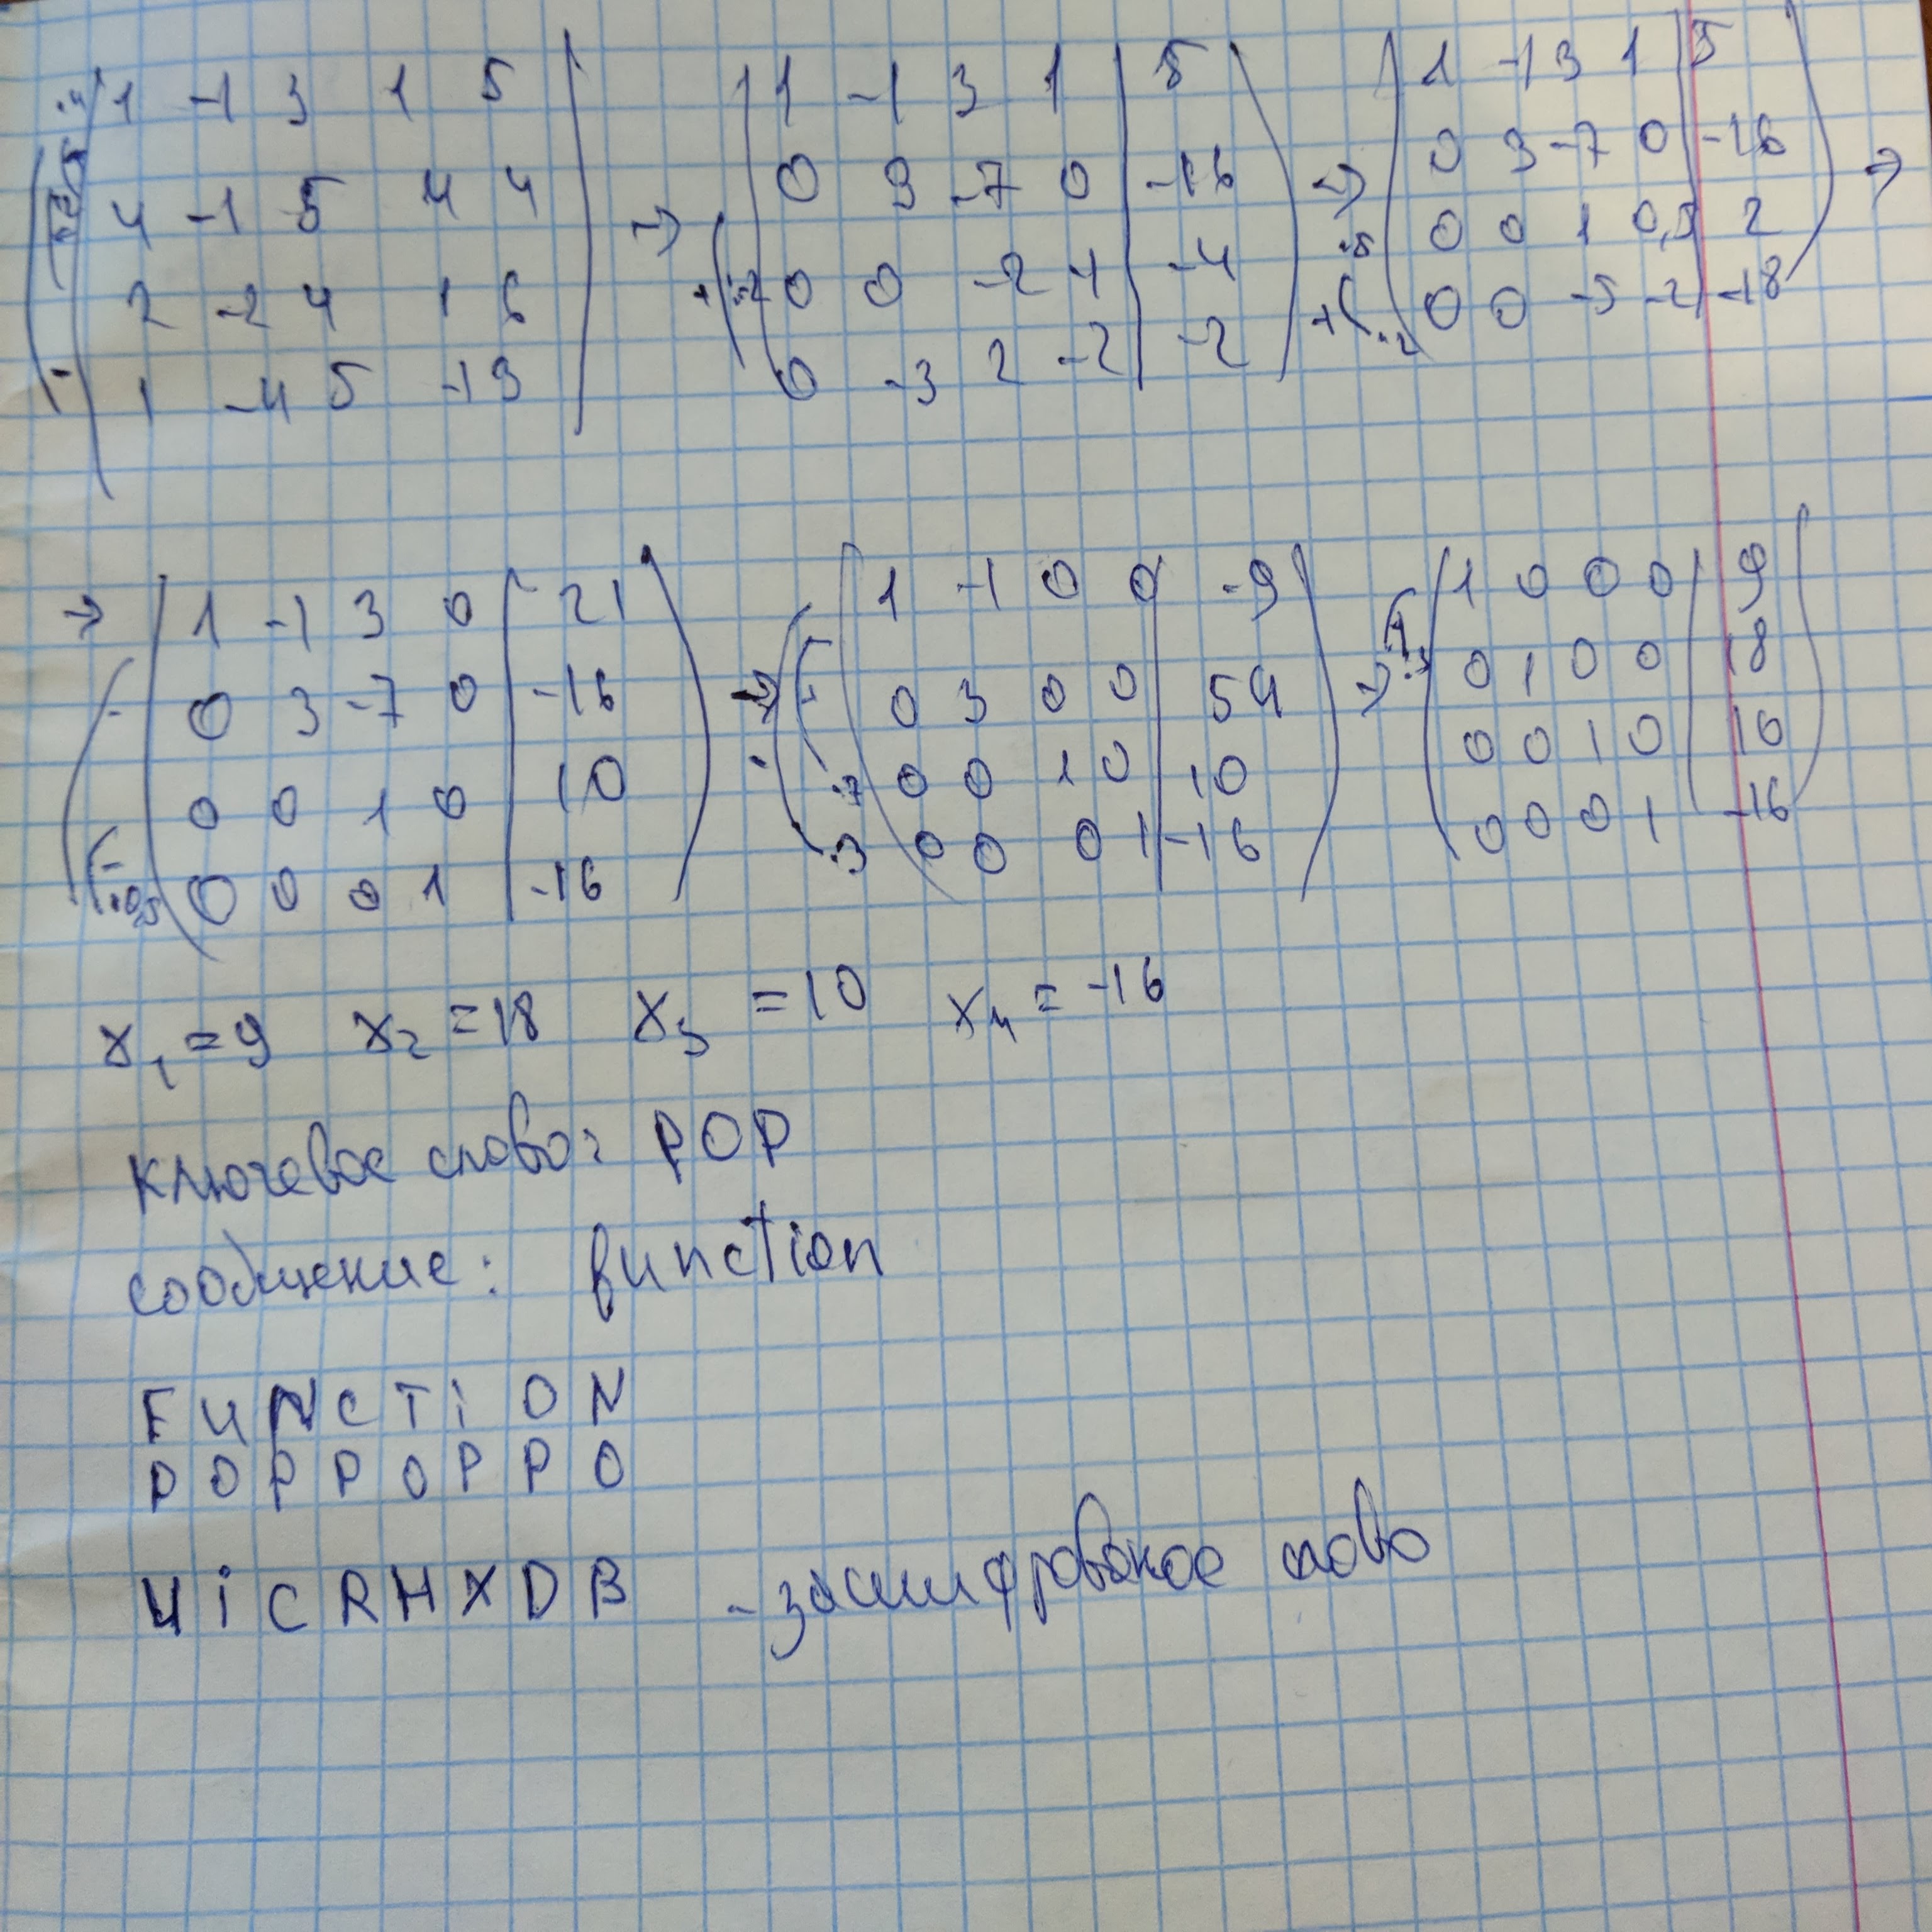 ·4 1 -1 3 1 5
4 -1 5 4 4
2 -2 4 1 6
1 -4 5 -1 3
→
1 -1 3 1 | 5
0 3 -7 0 | -16
+ ·2 0 0 -2 -1 | -4
0 -3 2 -2 | -2
→
1 -1 3 1 | 5
0 3 -7 0 | -16
·5 0 0 1 0,5 2
+ ·2 0 0 -5 -2 | -18
→
→ 1 -1 3 0 | 21
- 0 3 -7 0 | -16
0 0 1 0 | 10
- ·0,5 0 0 0 1 | -16
→
1 -1 0 0 | -9
- 0 3 0 0 | 54
- ·7 0 0 1 0 | 10
·3 0 0 0 1 | -16
→
1 0 0 0 | 9
0 1 0 0 | 18
0 0 1 0 | 10
0 0 0 1 | -16
x1 = 9 x2 = 18 x3 = 10 x4 = -16
Ключевое слово: POP
сообщение: function
F U N C T i O N
P O P P O P P O
U i C R H X D B - зашифрованое слово